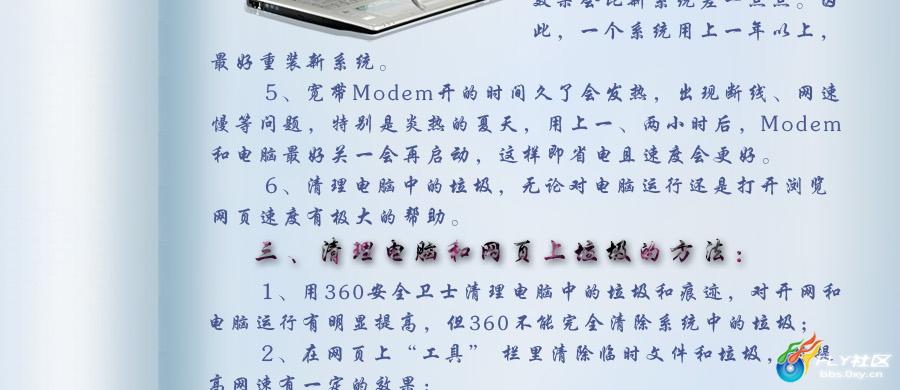 效果会比新系统差一点点。因
此，一个系统用上一年以上，
最好重装新系统。
5、宽带Modem开的时间久了会发热，出现断线、网速
慢等问题，特别是炎热的夏天，用上一、两小时后，Modem
和电脑最好关一会再启动，这样即省电且速度会更好。
6、清理电脑中的垃圾，无论对电脑运行还是打开浏览
网页速度有极大的帮助。
三、清理电脑和网页上垃圾的方法：
1、用360安全卫士清理电脑中的垃圾和痕迹，对开网和
电脑运行有明显提高，但360不能完全清除系统中的垃圾；
2、在网页上“工具” 栏里清除临时文件和垃圾，提
高网速有一定的效果；
社区
bbs.0xy.cn